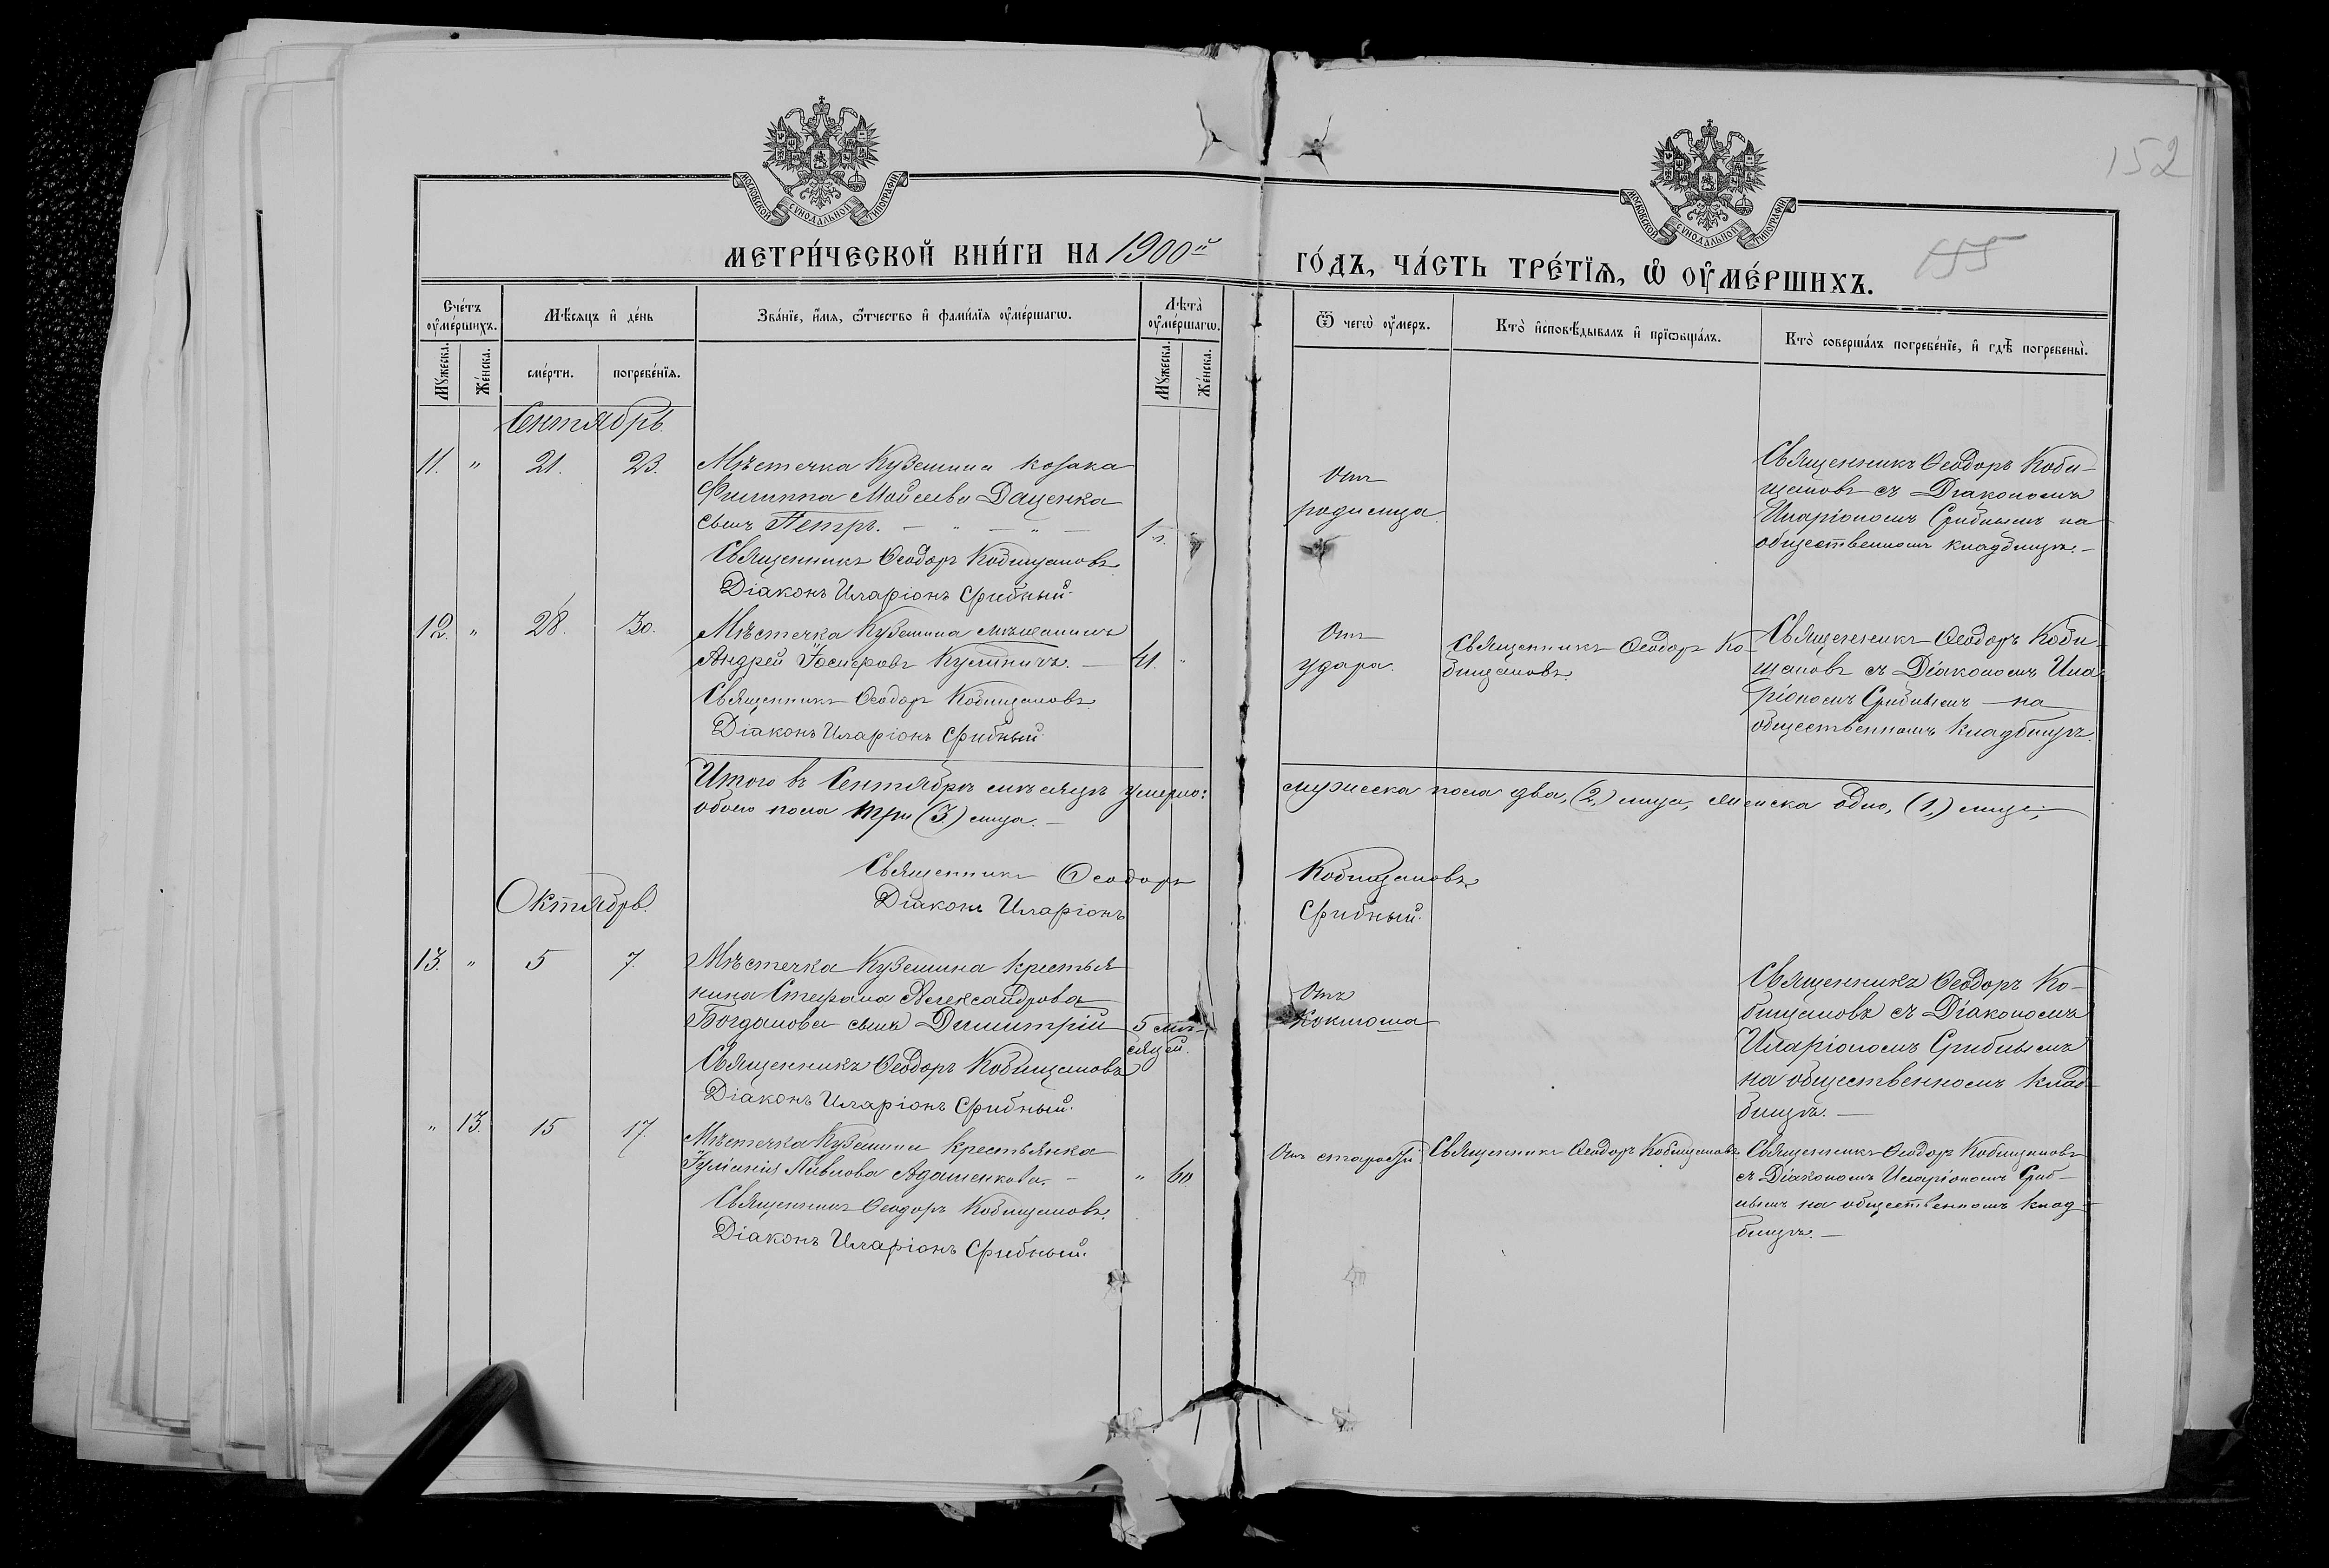 152
МОСКОВСКОЙ СѴНОДАЛЬНОЙ ТИПОГРАФІИ
МОСКОВСКОЙ СѴНОДАЛЬНОЙ ТИПОГРАФІИ
МЕТРИ́ЧЕСКОЙ КНИ́ГИ НА 1900й
ГО́ДЪ, ЧА́СТЬ ТРЕ́ТІѦ, Ѡ҆ ОУ҆МЕ́РШИХЪ.
155
Сче́тъ оу҆ме́ршихъ.
Мꙋ́жеска.
Же́нска.
Мѣ́сяцъ и҆ де́нь
сме́рти.
погребе́нїѧ.
Зва́нїе, и҆́мѧ, ѻ҆́тчество и҆ фами́лїѧ оу҆ме́ршагѡ.
Лѣта̀ оу҆ме́ршагѡ.
Мꙋ́жеска.
Же́нска.
Ѿ чегѡ̀ оу҆́меръ.
Кто̀ и҆сповѣ́дывалъ и҆ прїѡбща́лъ.
Кто̀ соверша́лъ погребе́нїе, и҆ гдѣ̀ погребены̀.
Сентябрь
11. " 21. 23.
Мѣстечка Куземина козака
Филиппа Моѵсеева Даценка
сынъ Петръ. — " — " —
1 г.
Священникъ Ѳеодоръ Кобищановъ
Діаконъ Иларіонъ Срибный.
Отъ
родимца
Священникъ Ѳеодоръ Коби-
щановъ съ Діакономъ
Иларіономъ Срибнымъ на
общественномъ кладбищѣ. —
12. " 28. 30.
Мѣстечка Куземина мѣщанинъ
Андрей Іосифовъ Кулиничъ. —
41. "
Священникъ Ѳеодоръ Кобищановъ
Діаконъ Иларіонъ Срибный.
Отъ
удара.
Священникъ Ѳеодоръ Ко-
бищановъ
Священникъ Ѳеодоръ Коби-
щановъ съ Діакономъ Ила-
ріономъ Срибнымъ на
общественномъ кладбищѣ.
Итого въ Сентябрѣ мѣсяцѣ умерло:
мужеска пола два, (2,) лица, женска одно, (1,) лице;
обоего пола три (3.) лица. —
Священникъ Ѳеодоръ Кобищановъ
Діаконъ Иларіонъ Срибный.
Октябрь.
13. " 5 7.
Мѣстечка Куземина крестья
нина Стефана Александрова
Богданова сынъ Димитрій
5 мѣ-
сяцей.
Священникъ Ѳеодоръ Кобищановъ
Діаконъ Иларіонъ Срибный.
Отъ
Коклюша
Священникъ Ѳеодоръ Ко-
бищановъ съ Діакономъ
Иларіономъ Срибнымъ
на общественномъ клад-
бищѣ. —
" 13. 15 17.
Мѣстечка Куземина крестьянка
Іуліанія Павлова Адаменкова. —
" 60.
Священникъ Ѳеодоръ Кобищановъ.
Діаконъ Иларіонъ Срибный.
Отъ старости
Священникъ Ѳеодоръ Кобищановъ
Священникъ Ѳеодоръ Кобищановъ
съ Діакономъ Иларіономъ Сриб-
нымъ на общественномъ клад-
бищѣ. —